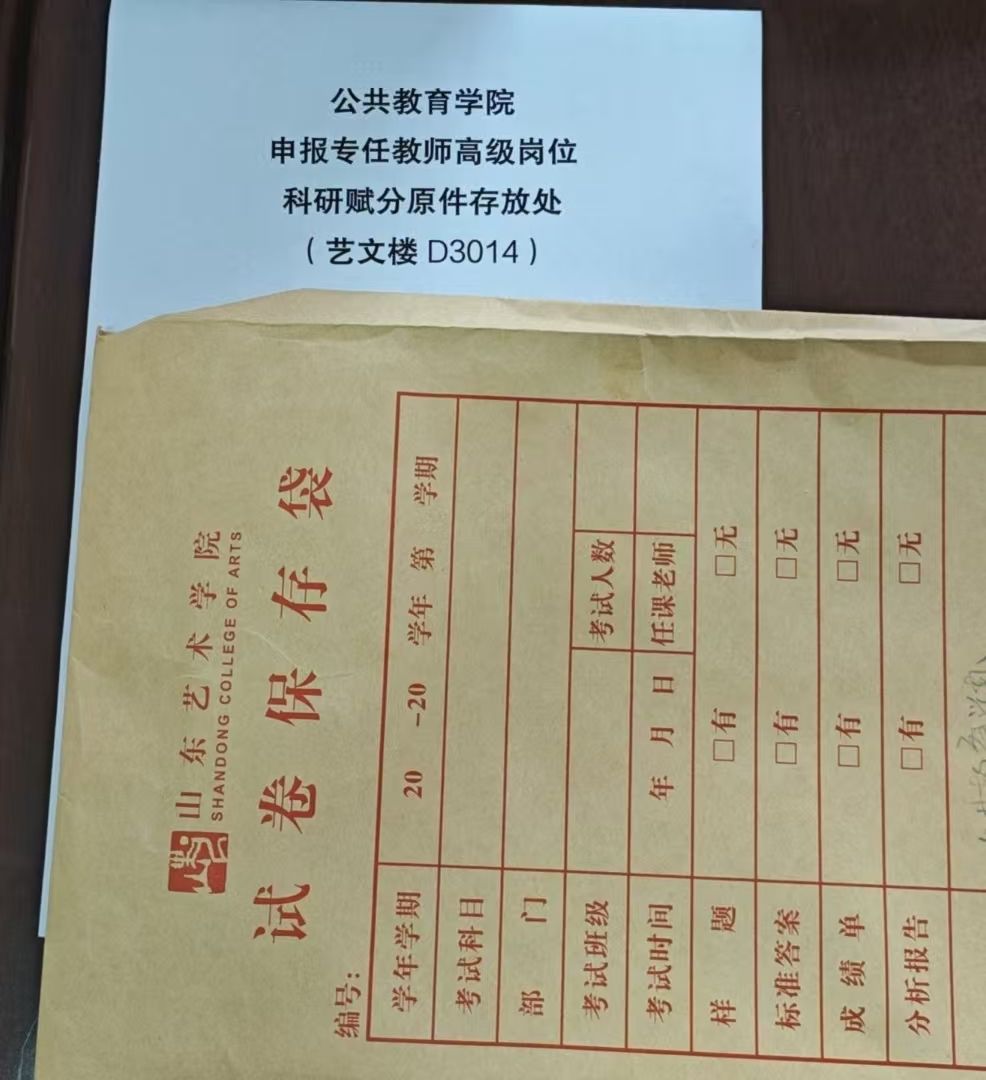 公共教育学院
申报专任教师高级岗位
科研赋分原件存放处
（艺文楼 D3014）
山东艺术学院
SHANDONG COLLEGE OF ARTS
试卷保存袋
编号：
学年学期 20 -20 学年 第 学期
考试科目
部 门
考试班级 考试人数
考试时间 年 月 日 任课老师
样 题 □有 □无
标准答案 □有 □无
成 绩 单 □有 □无
分析报告 □有 □无